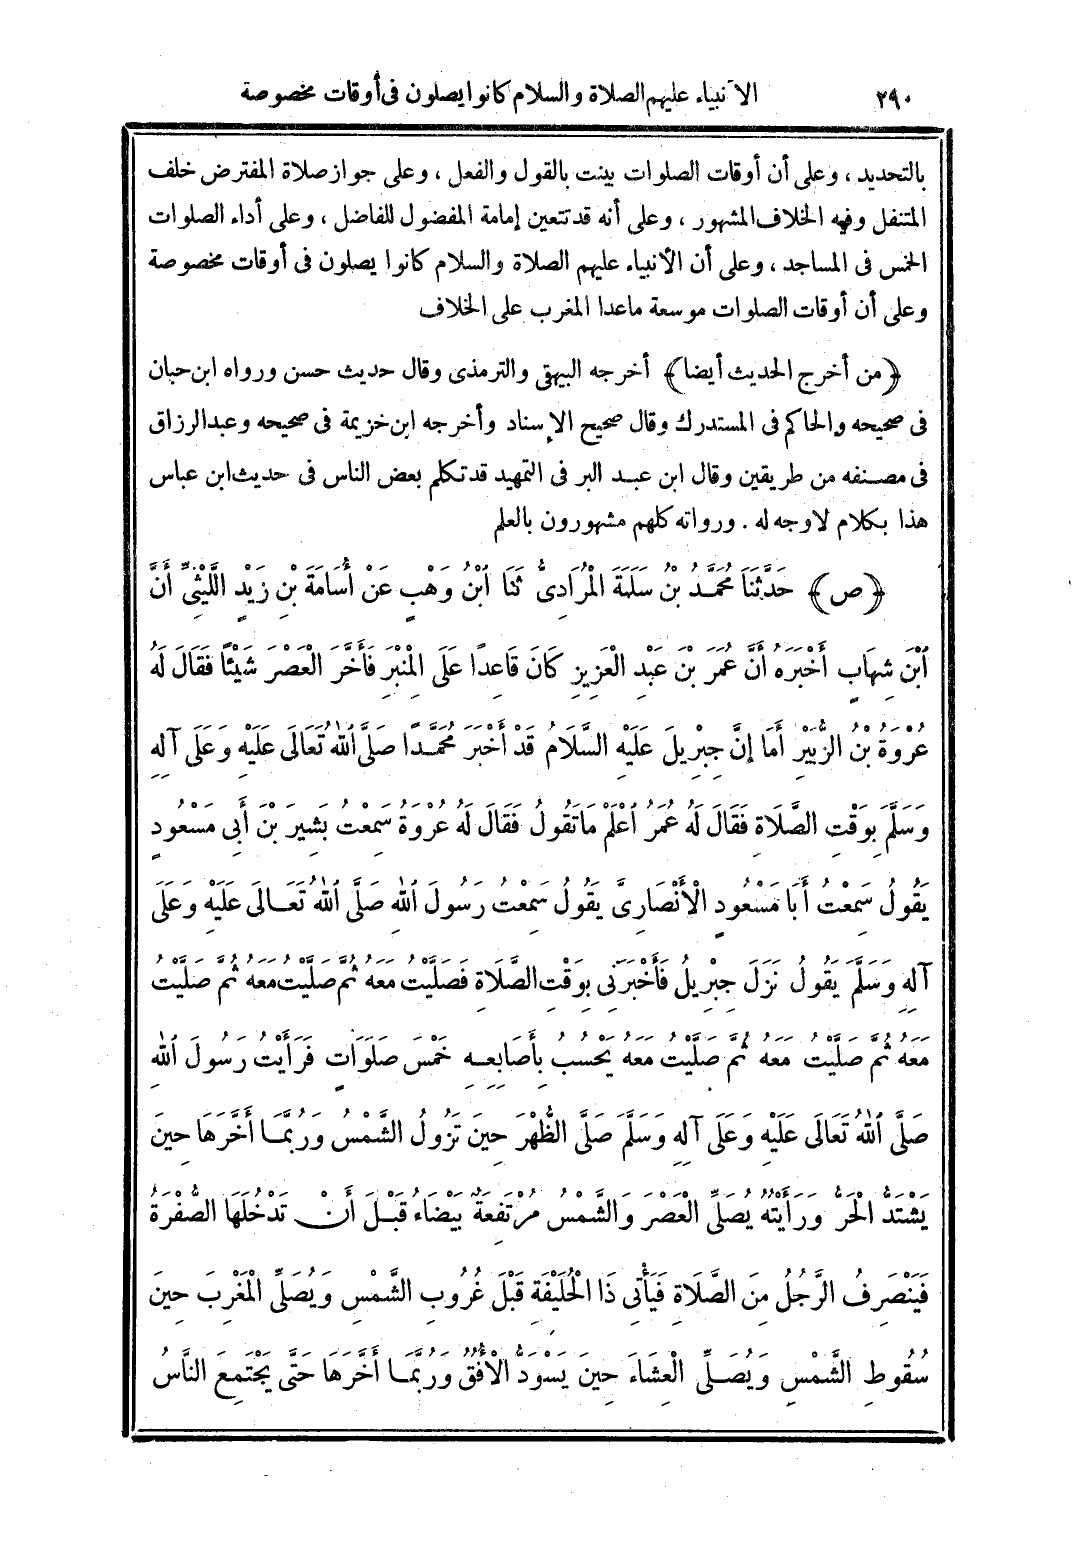 ٢٩٠ الأنبياء عليهم الصلاة والسلام كانوا يصلون فى أوقات مخصوصة
بالتحديد ، وعلى أن أوقات الصلوات بينت بالقول والفعل ، وعلى جواز صلاة المفترض خلف
المتنفل وفيه الخلاف المشهور ، وعلى أنه قد تتعين إمامة المفضول للفاضل ، وعلى أداء الصلوات
الخمس فى المساجد ، وعلى أن الأنبياء عليهم الصلاة والسلام كانوا يصلون فى أوقات مخصوصة
وعلى أن أوقات الصلوات موسعة ماعدا المغرب على الخلاف
﴿من أخرج الحديث أيضا﴾ أخرجه البيهقى والترمذى وقال حديث حسن ورواه ابن حبان
فى صحيحه والحاكم فى المستدرك وقال صحيح الإسناد وأخرجه ابن خزيمة فى صحيحه وعبد الرزاق
فى مصنفه من طريقين وقال ابن عبد البر فى التمهيد قد تكلم بعض الناس فى حديث ابن عباس
هذا بكلام لاوجه له . ورواته كلهم مشهورون بالعلم
﴿ص﴾ حَدَّثَنَا مُحَمَّدُ بْنُ سَلَمَةَ الْمُرَادِىُّ ثَنَا ٱبْنُ وَهْبٍ عَنْ أُسَامَةَ بْنِ زَيْدٍ اللَّيْثِىِّ أَنَّ
ٱبْنَ شِهَابٍ أَخْبَرَهُ أَنَّ عُمَرَ بْنَ عَبْدِ الْعَزِيزِ كَانَ قَاعِدًا عَلَى الْمِنْبَرِ فَأَخَّرَ الْعَصْرَ شَيْئًا فَقَالَ لَهُ
عُرْوَةُ بْنُ الزُّبَيْرِ أَمَا إِنَّ جِبْرِيلَ عَلَيْهِ السَّلَامُ قَدْ أَخْبَرَ مُحَمَّدًا صَلَّى ٱللهُ تَعَالَى عَلَيْهِ وَعَلَى آلِهِ
وَسَلَّمَ بِوَقْتِ الصَّلَاةِ فَقَالَ لَهُ عُمَرُ ٱعْلَمْ مَا تَقُولُ فَقَالَ لَهُ عُرْوَةُ سَمِعْتُ بَشِيرَ بْنَ أَبِى مَسْعُودٍ
يَقُولُ سَمِعْتُ أَبَا مَسْعُودٍ الْأَنْصَارِىَّ يَقُولُ سَمِعْتُ رَسُولَ ٱللهِ صَلَّى ٱللهُ تَعَالَى عَلَيْهِ وَعَلَى
آلِهِ وَسَلَّمَ يَقُولُ نَزَلَ جِبْرِيلُ فَأَخْبَرَنِى بِوَقْتِ الصَّلَاةِ فَصَلَّيْتُ مَعَهُ ثُمَّ صَلَّيْتُ مَعَهُ ثُمَّ صَلَّيْتُ
مَعَهُ ثُمَّ صَلَّيْتُ مَعَهُ ثُمَّ صَلَّيْتُ مَعَهُ يَحْسُبُ بِأَصَابِعِهِ خَمْسَ صَلَوَاتٍ فَرَأَيْتُ رَسُولَ ٱللهِ
صَلَّى ٱللهُ تَعَالَى عَلَيْهِ وَعَلَى آلِهِ وَسَلَّمَ صَلَّى الظُّهْرَ حِينَ تَزُولُ الشَّمْسُ وَرُبَّمَا أَخَّرَهَا حِينَ
يَشْتَدُّ الْحَرُّ وَرَأَيْتُهُ يُصَلِّى الْعَصْرَ وَالشَّمْسُ مُرْتَفِعَةٌ بَيْضَاءُ قَبْلَ أَنْ تَدْخُلَهَا الصُّفْرَةُ
فَيَنْصَرِفُ الرَّجُلُ مِنَ الصَّلَاةِ فَيَأْتِى ذَا الْحُلَيْفَةِ قَبْلَ غُرُوبِ الشَّمْسِ وَيُصَلِّى الْمَغْرِبَ حِينَ
سُقُوطِ الشَّمْسِ وَيُصَلِّى الْعِشَاءَ حِينَ يَسْوَدُّ الْأُفُقُ وَرُبَّمَا أَخَّرَهَا حَتَّى يَجْتَمِعَ النَّاسُ